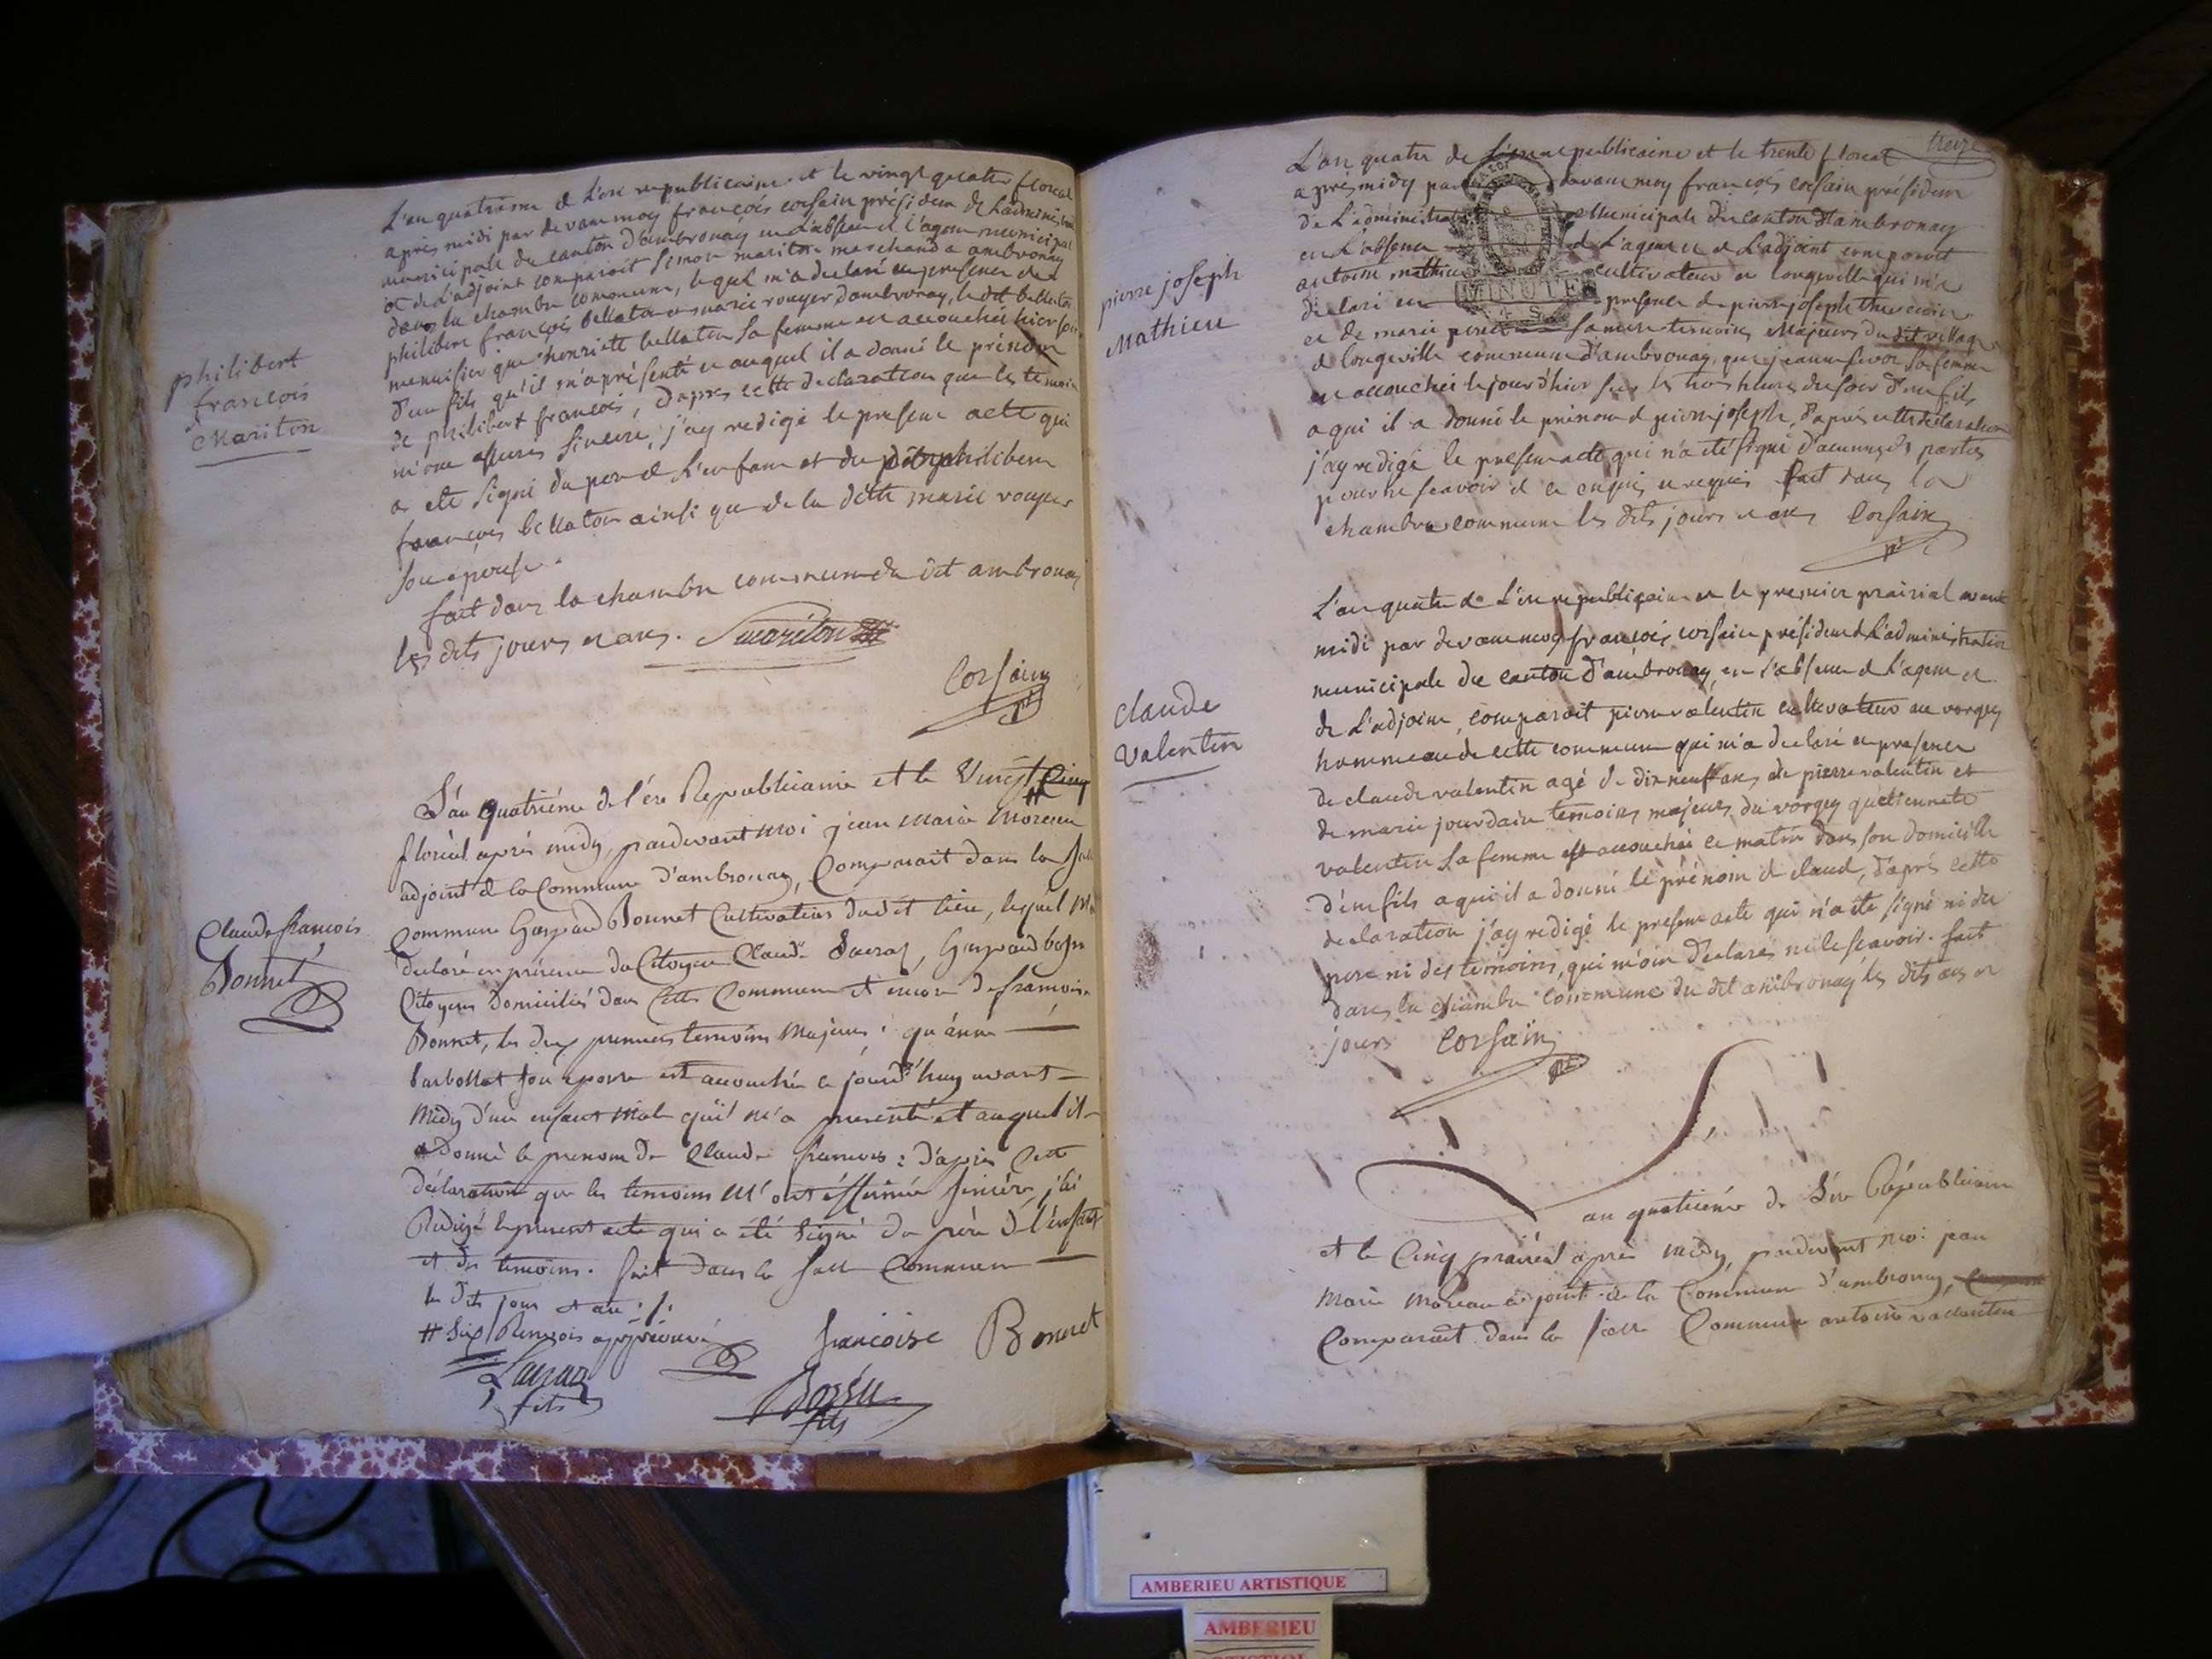 philibert
françois
Mariton
L'an quatrieme de L'ere republicaine et le vingt quatre floreal
après midi par devant moy françois corsain président de L'administration
municipale du canton d'ambronay en L'absence de L'agent municipal
et de L'adjoint comparoit Simon mariton marchand a ambronay
dans la chambre commune, lequel m'a declaré en presence de
philibert françois bellaton et marie rouyer d'ambronay, le dit bellaton
menuisier que henriette bellaton sa femme est accouchée hier soir
d'un fils qu'il m'a présenté et auquel il a donné le prénom
de philibert françois, d'apres cette declaration que les temoins
m'ont assurés sincere, j'ay redigé le present acte qui
a eté signé du pere de L'enfant et du dit philibert
françois bellaton ainsi que de la dette marie rouyer
son epouse.
fait dans la chambre commune du dit ambronay
les dits jours et ans. Smariton
Corsain
Claude francois
Bonnet
L'an quatriéme de l'ére Republicaine et le Vingt Cinq #
floréal après midy, pardevant Moi jean Marie Moreau
adjoint de la Commune d'ambronay, Comparait dans la Salle
Commune Gaspard Bonnet Cultivateur dudit lieu, lequel M'a
declaré en présence du Citoyen Claude Gaspard
Citoyens Domiciliés dans Cette Commune et encore de francoise
Bonnet, les deux premiers temoins Majeurs; qu'anne
barbollat son eponse est accouchée ce jourd'huy avant
Midy d'un enfant Male qu'il m'a presenté et auquel il
a Donné le prenom de Claude francois : d'après Cette
déclaration que les temoins M'ont assurée sincére, j'ai
Redigé le present acte qui a été Signé du père de l'enfant
et des temoins. fait dans la salle Commune
les Dits jour et an ./.
# Six / Renvois approuvé
francoise Bonnet
fils
fils
treize
pierre joseph
Mathieu
L'an quatre de L'ere republicaine et le trente floreal
après midy par devant moy françois corsain président
de L'administration Municipale du canton d'ambronay
en L'absence de L'agent et de L'adjoint comparoit
antoine mathieu cultivateur a longeville qui m'a
declaré en presence de pierre joseph
et de marie sa mere temoins Majeurs du dit village
de longeville commune d'ambronay, que jeanne sa femme
est accouchée le jour d'hier sur les trois heures du soir d'un fils
a qui il a donné le prénom de pierre joseph, d'après cette declaration
j'ay redigé le present acte qui n'a eté signé d'aucunes des parties
pour ne scavoir de ce enquis et requis fait dans la
chambre commune les dits jours et ans Corsain
MINUTE
claude
Valentin
L'an quatre de L'ere republicaine et le premier prairial avant
midi par devant moy françois corsain président de L'administration
municipale du canton d'ambronay, en l'absence de L'agent et
de L'adjoint, comparoit pierre valentin cultivateur au vorgey
hammeau de cette commune qui m'a declaré en presence
de claude valentin agé de dix neuf ans, de pierre valentin et
de marie jourdain temoins majeurs, du vorgey qu'etiennete
valentin sa femme est accouchée ce matin dans son domicille
d'un fils a qui il a donné le prénom de claude, d'aprés cette
declaration j'ay redigé le present acte qui n'a ete signé ni du
pere ni des temoins, qui m'ont declarés ne le scavoir. fait
dans la chambre commune du dit ambronay les dits ans et
jours Corsain
L'an quatriéme de L'ére Républicaine
et le Cinq prairial après Midy, pardevant moi jean
Marie Moreau adjoint de la Commune d'ambronay,
Comparait dans la salle Commune antoine
AMBERIEU ARTISTIQUE
AMBERIEU
ARTISTIQUE